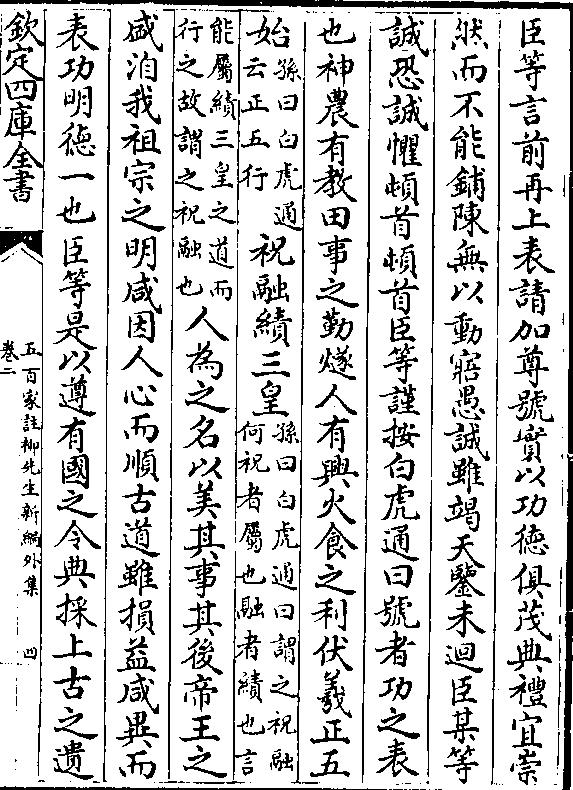 臣等言前再上表請加尊號實以功德俱茂典禮宜崇
然而不能鋪陳無以動寤愚誠雖竭天鑒未迴臣某等
誠恐誠懼頓首頓首臣等謹按白虎通曰號者功之表
也神農有教田事之勤燧人有興火食之利伏羲正五
始孫曰白虎通
云正五行祝融續三皇孫曰白虎通曰謂之祝融
何祝者屬也融者續也言
能屬續三皇之道而
行之故謂之祝融也人為之名以美其事其後帝王之
盛洎我祖宗之明咸因人心而順古道雖損益咸異而
表功明德一也臣等是以遵有國之令典採上古之遺
欽定四庫全書
五百家註柳先生新編外集
卷二
四